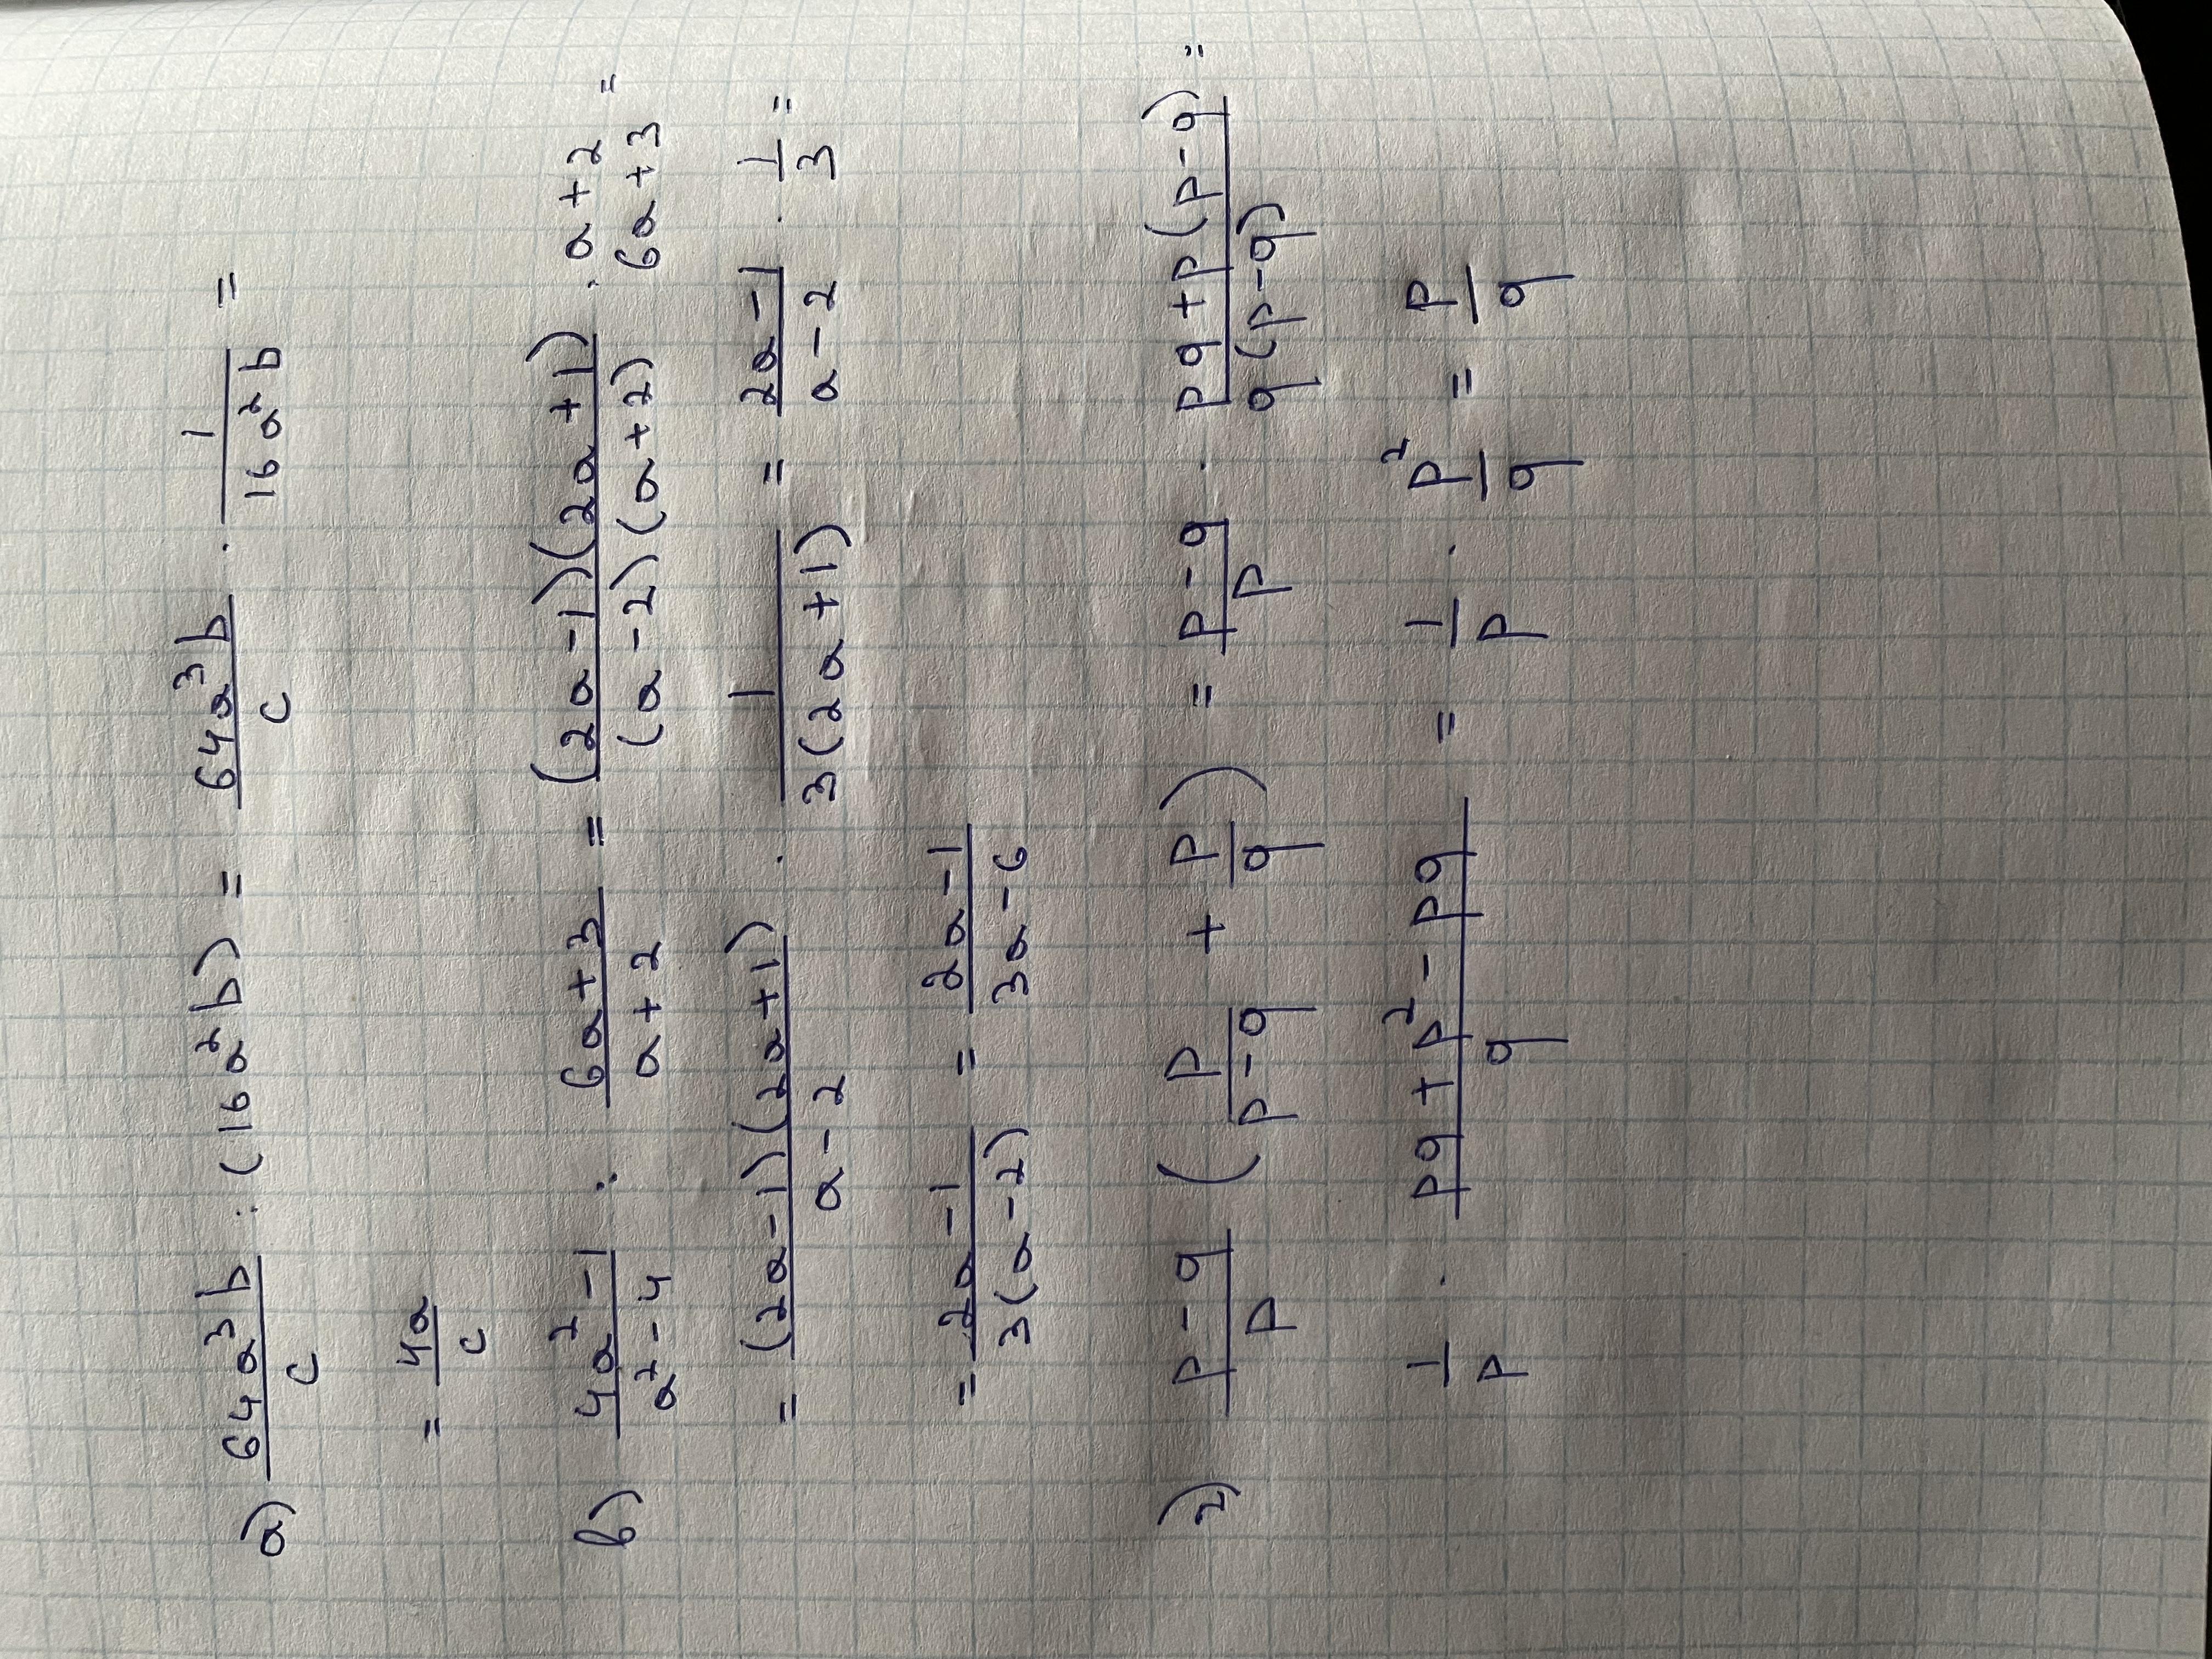 а) 64a³b/c : (16a²b) = 64a³b/c · 1/16a²b =
= 4a/c
в) 4a²-1/a²-4 : 6a+3/a+2 = (2a-1)(2a+1)/(a-2)(a+2) · a+2/6a+3 =
= (2a-1)(2a+1)/a-2 · 1/3(2a+1) = 2a-1/a-2 · 1/3 =
= 2a-1/3(a-2) = 2a-1/3a-6
г) p-q/p (p/p-q + p/q) = p-q/p · pq+p(p-q)/q(p-q) =
1/p · pq+p²-pq/q = 1/p · p²/q = p/q